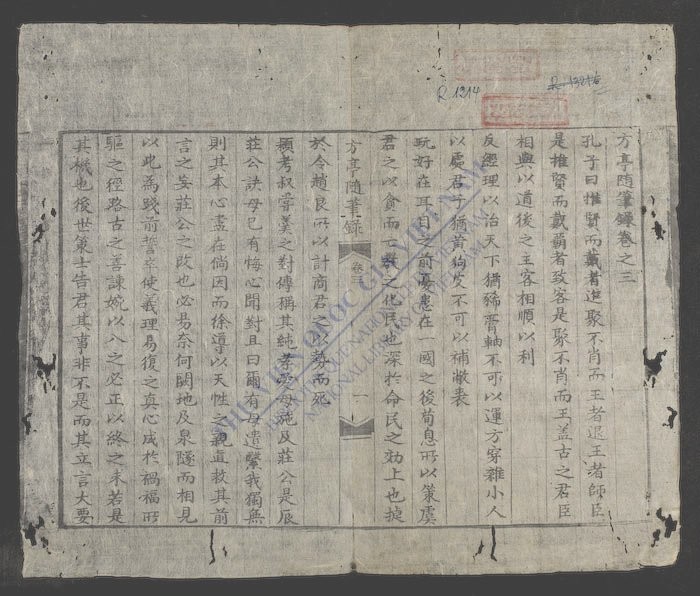 R.1214
方亭隨筆錄卷之三
孔子曰推賢而戴者進聚不肖而王者退王者師臣
是推賢而戴覇者致客是聚不肖而王盖古之君臣
相與以道後之主客相順以利
反經理以治天下猶豨膏軸不可以運方穿雜小人
以處君子猶黄狗皮不可以補敝裘
玩好在耳目之前憂患在一國之後荀息所以策虞
君之以貪而亡教之化民也深於命民之効上也捷
方亭隨筆錄
卷三
一
於令趙良所以計商君之以勢而死
穎考叔字羮之對傳稱其純孝愛母施及莊公是辰
莊公誤母已有悔心聞對且曰爾有母遺繄我獨無
則其本心盡在倘因而徐導以天性之親道救其前
言之妄莊公之改也必易奈何闕地及泉隧而相見
以此爲踐前誓卒使義理易復之真心成於禍福所
驅之徑路古之善諫婉以入之必正以終之未若是
其機也後世策士告君其事非不是而其立言大要
THƯ VIỆN QUỐC GIA VIỆT NAM
NATIONAL LIBRARY OF VIETNAM